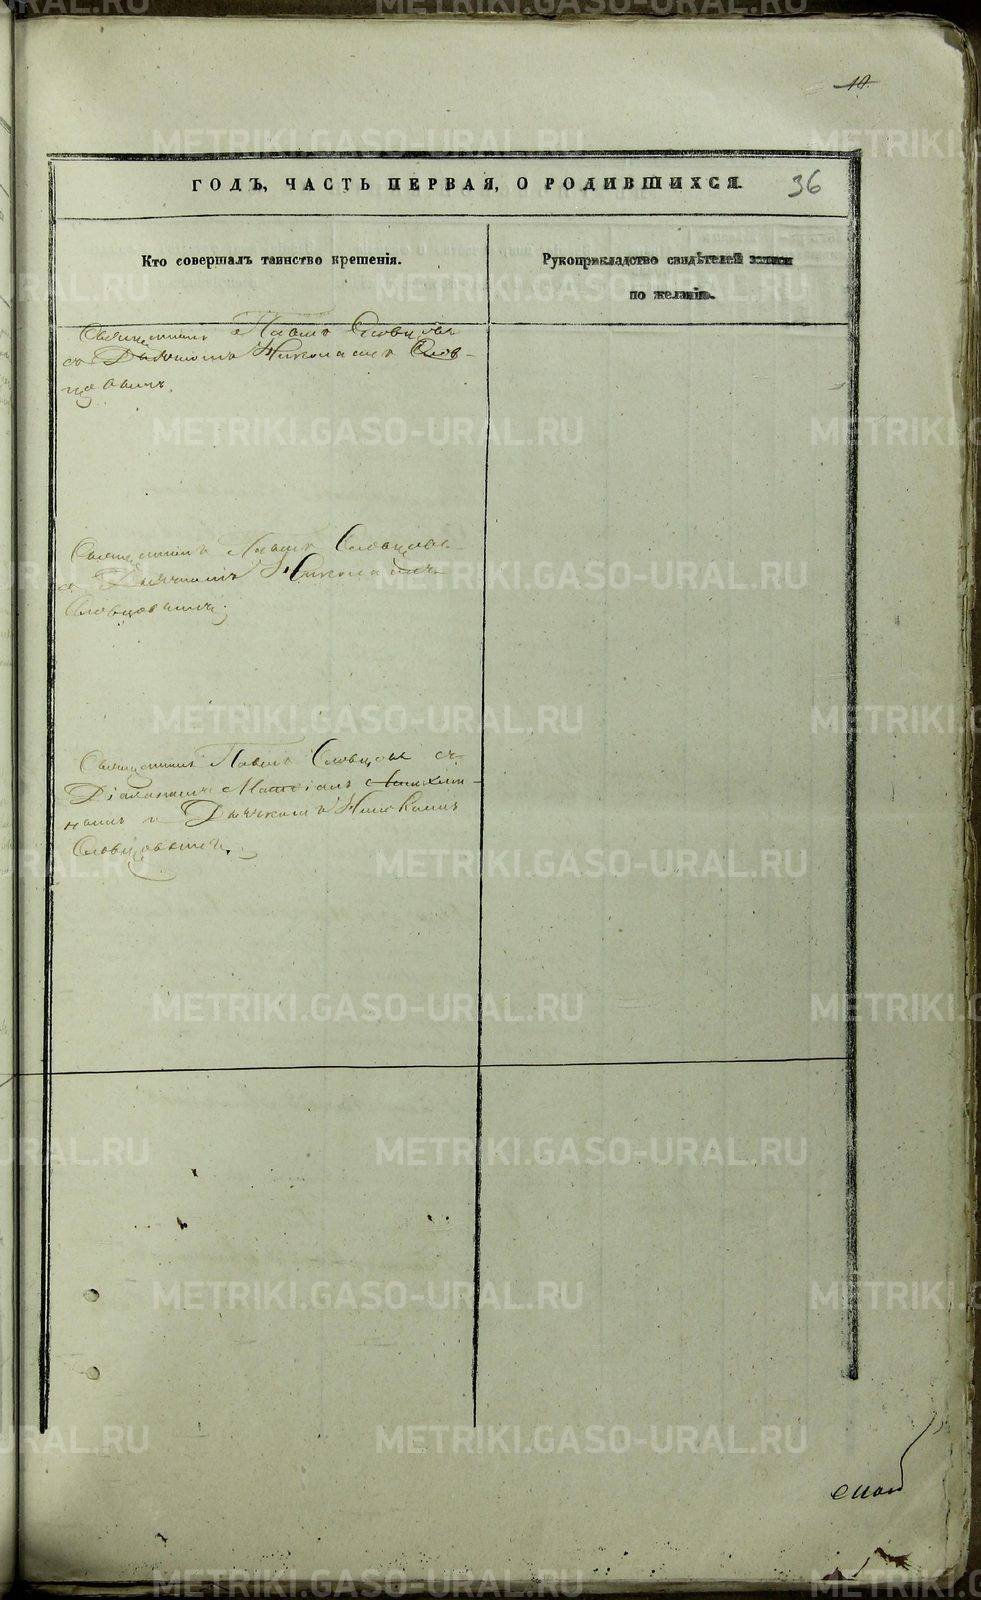 10.
ГОДЪ, ЧАСТЬ ПЕРВАЯ, О РОДИВШИХСЯ.
36
Кто совершалъ таинство крещенія.
Рукоприкладство свидѣтелей записи
по желанію.
Священникъ Павелъ Словцовъ
съ Дьячкомъ Николаемъ Слов-
цовымъ.
Священникъ Павелъ Словцовъ
съ Дьячкомъ Николаемъ
Словцовымъ.
Священникъ Павелъ Словцовъ съ
Діакономъ
и Дьячкомъ Николаемъ
Словцовымъ.
METRIKI.GASO-URAL.RU